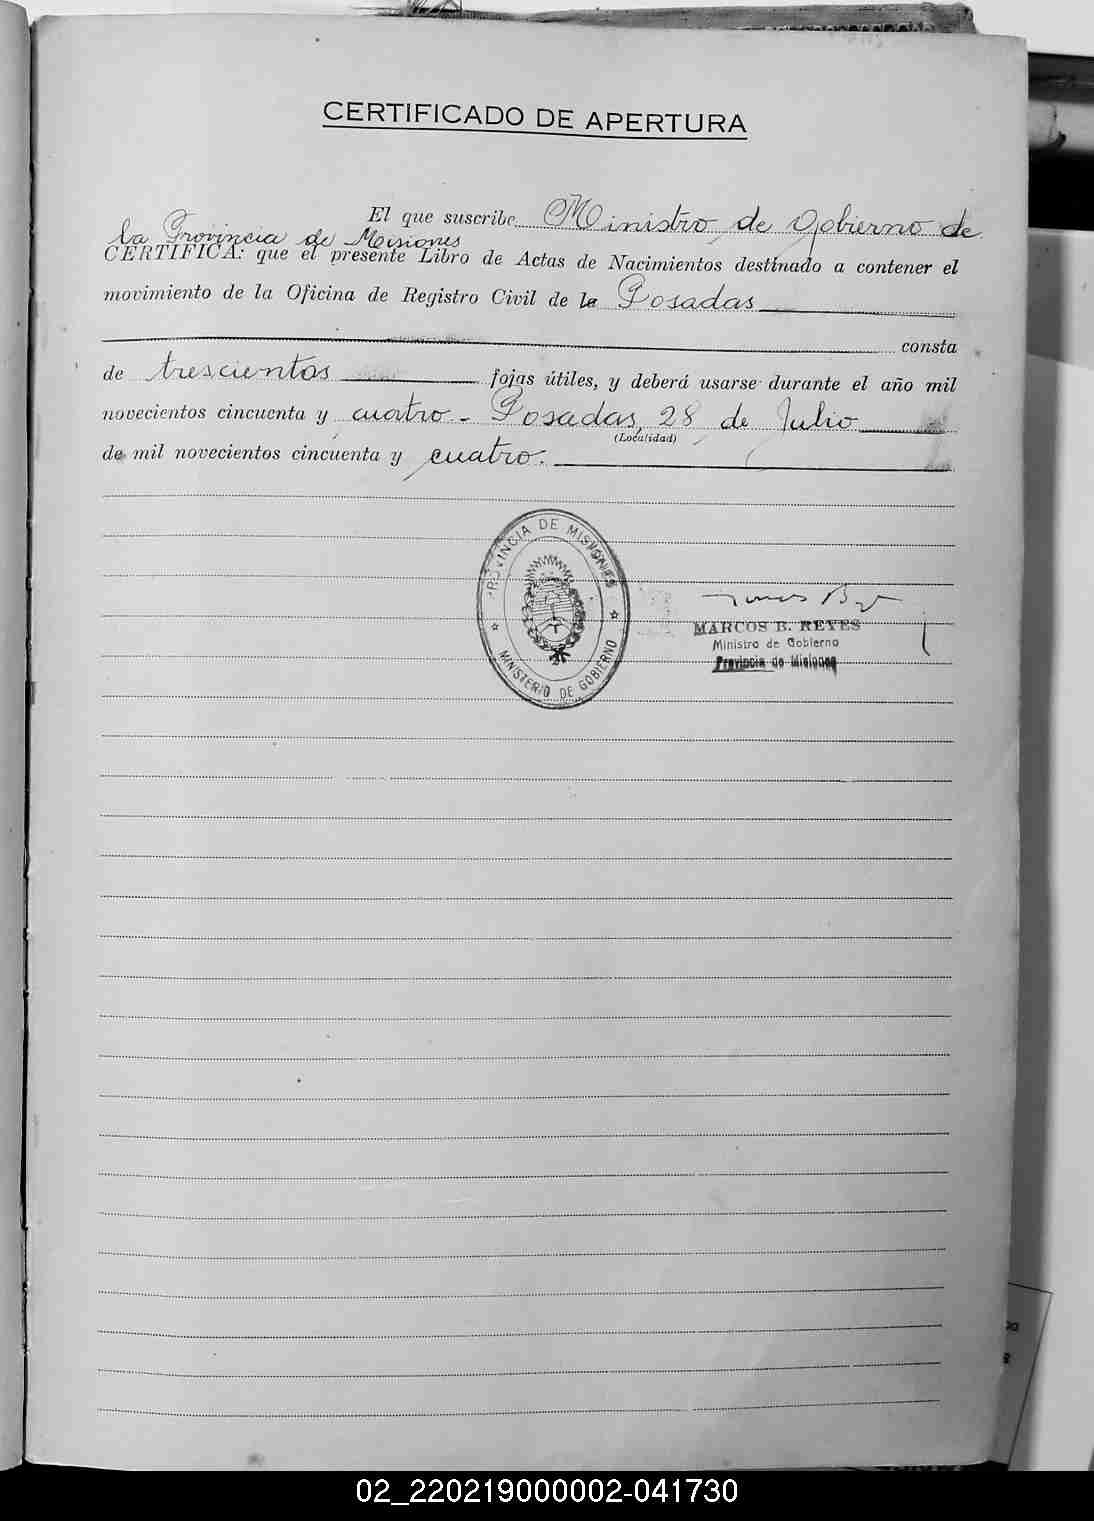 CERTIFICADO DE APERTURA
El que suscribe Ministro de Gobierno de
la Provincia de Misiones
CERTIFICA: que el presente Libro de Actas de Nacimientos destinado a contener el
movimiento de la Oficina de Registro Civil de la Posadas
consta
de trescientos fojas útiles, y deberá usarse durante el año mil
novecientos cincuenta y cuatro - Posadas, 28 de Julio
(Localidad)
de mil novecientos cincuenta y cuatro.
PROVINCIA DE MISIONES
MINISTERIO DE GOBIERNO
MARCOS B. REYES
Ministro de Gobierno
Provincia de Misiones
02_220219000002-041730